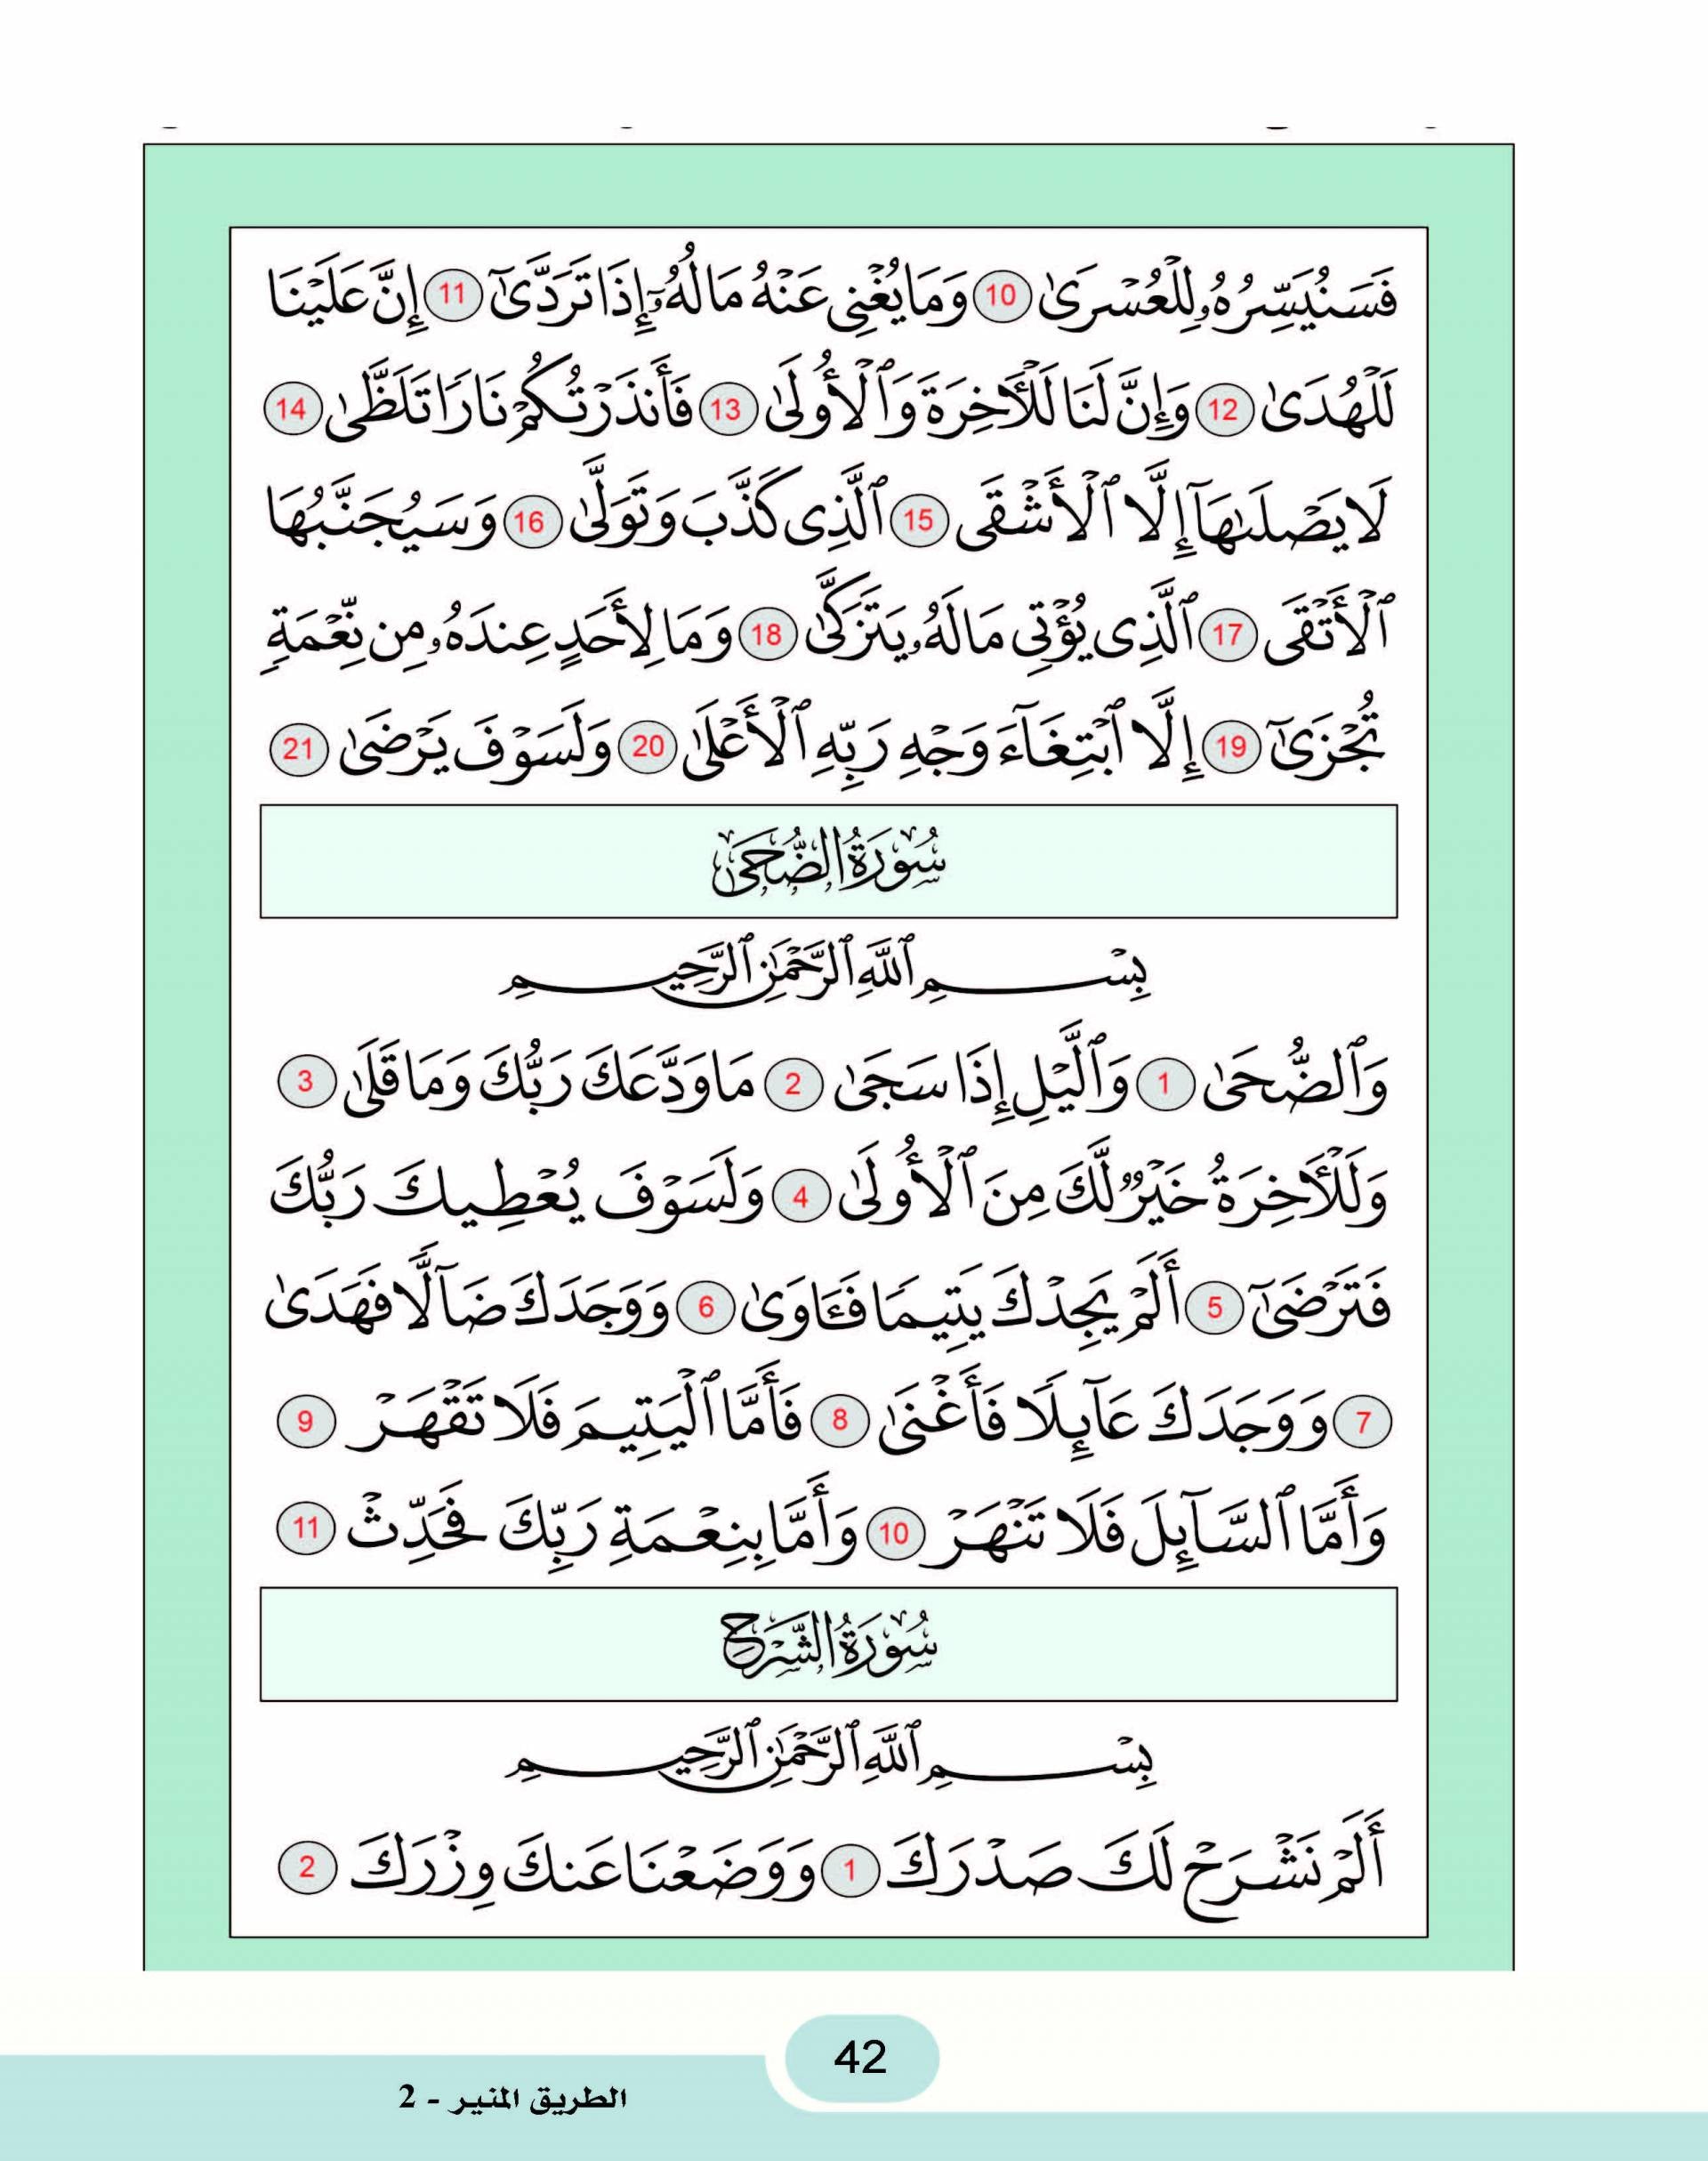 فَسَنُيَسِّرُهُۥ لِلْعُسْرَىٰ 10 وَمَا يُغْنِى عَنْهُ مَالُهُۥٓ إِذَا تَرَدَّىٰٓ 11 إِنَّ عَلَيْنَا
لَلْهُدَىٰ 12 وَإِنَّ لَنَا لَلْـَٔاخِرَةَ وَٱلْأُولَىٰ 13 فَأَنذَرْتُكُمْ نَارًا تَلَظَّىٰ 14
لَا يَصْلَىٰهَآ إِلَّا ٱلْأَشْقَى 15 ٱلَّذِى كَذَّبَ وَتَوَلَّىٰ 16 وَسَيُجَنَّبُهَا
ٱلْأَتْقَى 17 ٱلَّذِى يُؤْتِى مَالَهُۥ يَتَزَكَّىٰ 18 وَمَا لِأَحَدٍ عِندَهُۥ مِن نِّعْمَةٍ
تُجْزَىٰٓ 19 إِلَّا ٱبْتِغَآءَ وَجْهِ رَبِّهِ ٱلْأَعْلَىٰ 20 وَلَسَوْفَ يَرْضَىٰ 21
سُورَةُ الضُّحَىٰ
بِسْمِ ٱللَّهِ ٱلرَّحْمَٰنِ ٱلرَّحِيمِ
وَٱلضُّحَىٰ 1 وَٱلَّيْلِ إِذَا سَجَىٰ 2 مَا وَدَّعَكَ رَبُّكَ وَمَا قَلَىٰ 3
وَلَلْـَٔاخِرَةُ خَيْرٌ لَّكَ مِنَ ٱلْأُولَىٰ 4 وَلَسَوْفَ يُعْطِيكَ رَبُّكَ
فَتَرْضَىٰٓ 5 أَلَمْ يَجِدْكَ يَتِيمًا فَـَٔاوَىٰ 6 وَوَجَدَكَ ضَآلًّا فَهَدَىٰ
7 وَوَجَدَكَ عَآئِلًا فَأَغْنَىٰ 8 فَأَمَّا ٱلْيَتِيمَ فَلَا تَقْهَرْ 9
وَأَمَّا ٱلسَّآئِلَ فَلَا تَنْهَرْ 10 وَأَمَّا بِنِعْمَةِ رَبِّكَ فَحَدِّثْ 11
سُورَةُ الشَّرْحِ
بِسْمِ ٱللَّهِ ٱلرَّحْمَٰنِ ٱلرَّحِيمِ
أَلَمْ نَشْرَحْ لَكَ صَدْرَكَ 1 وَوَضَعْنَا عَنكَ وِزْرَكَ 2
42
الطريق المنير - 2